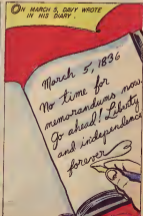 ON MARCH 5, DAVY WROTE
IN HIS DIARY.
March 5, 1836
No time for
memorandums now.
Go ahead! Liberty
and independence
forever